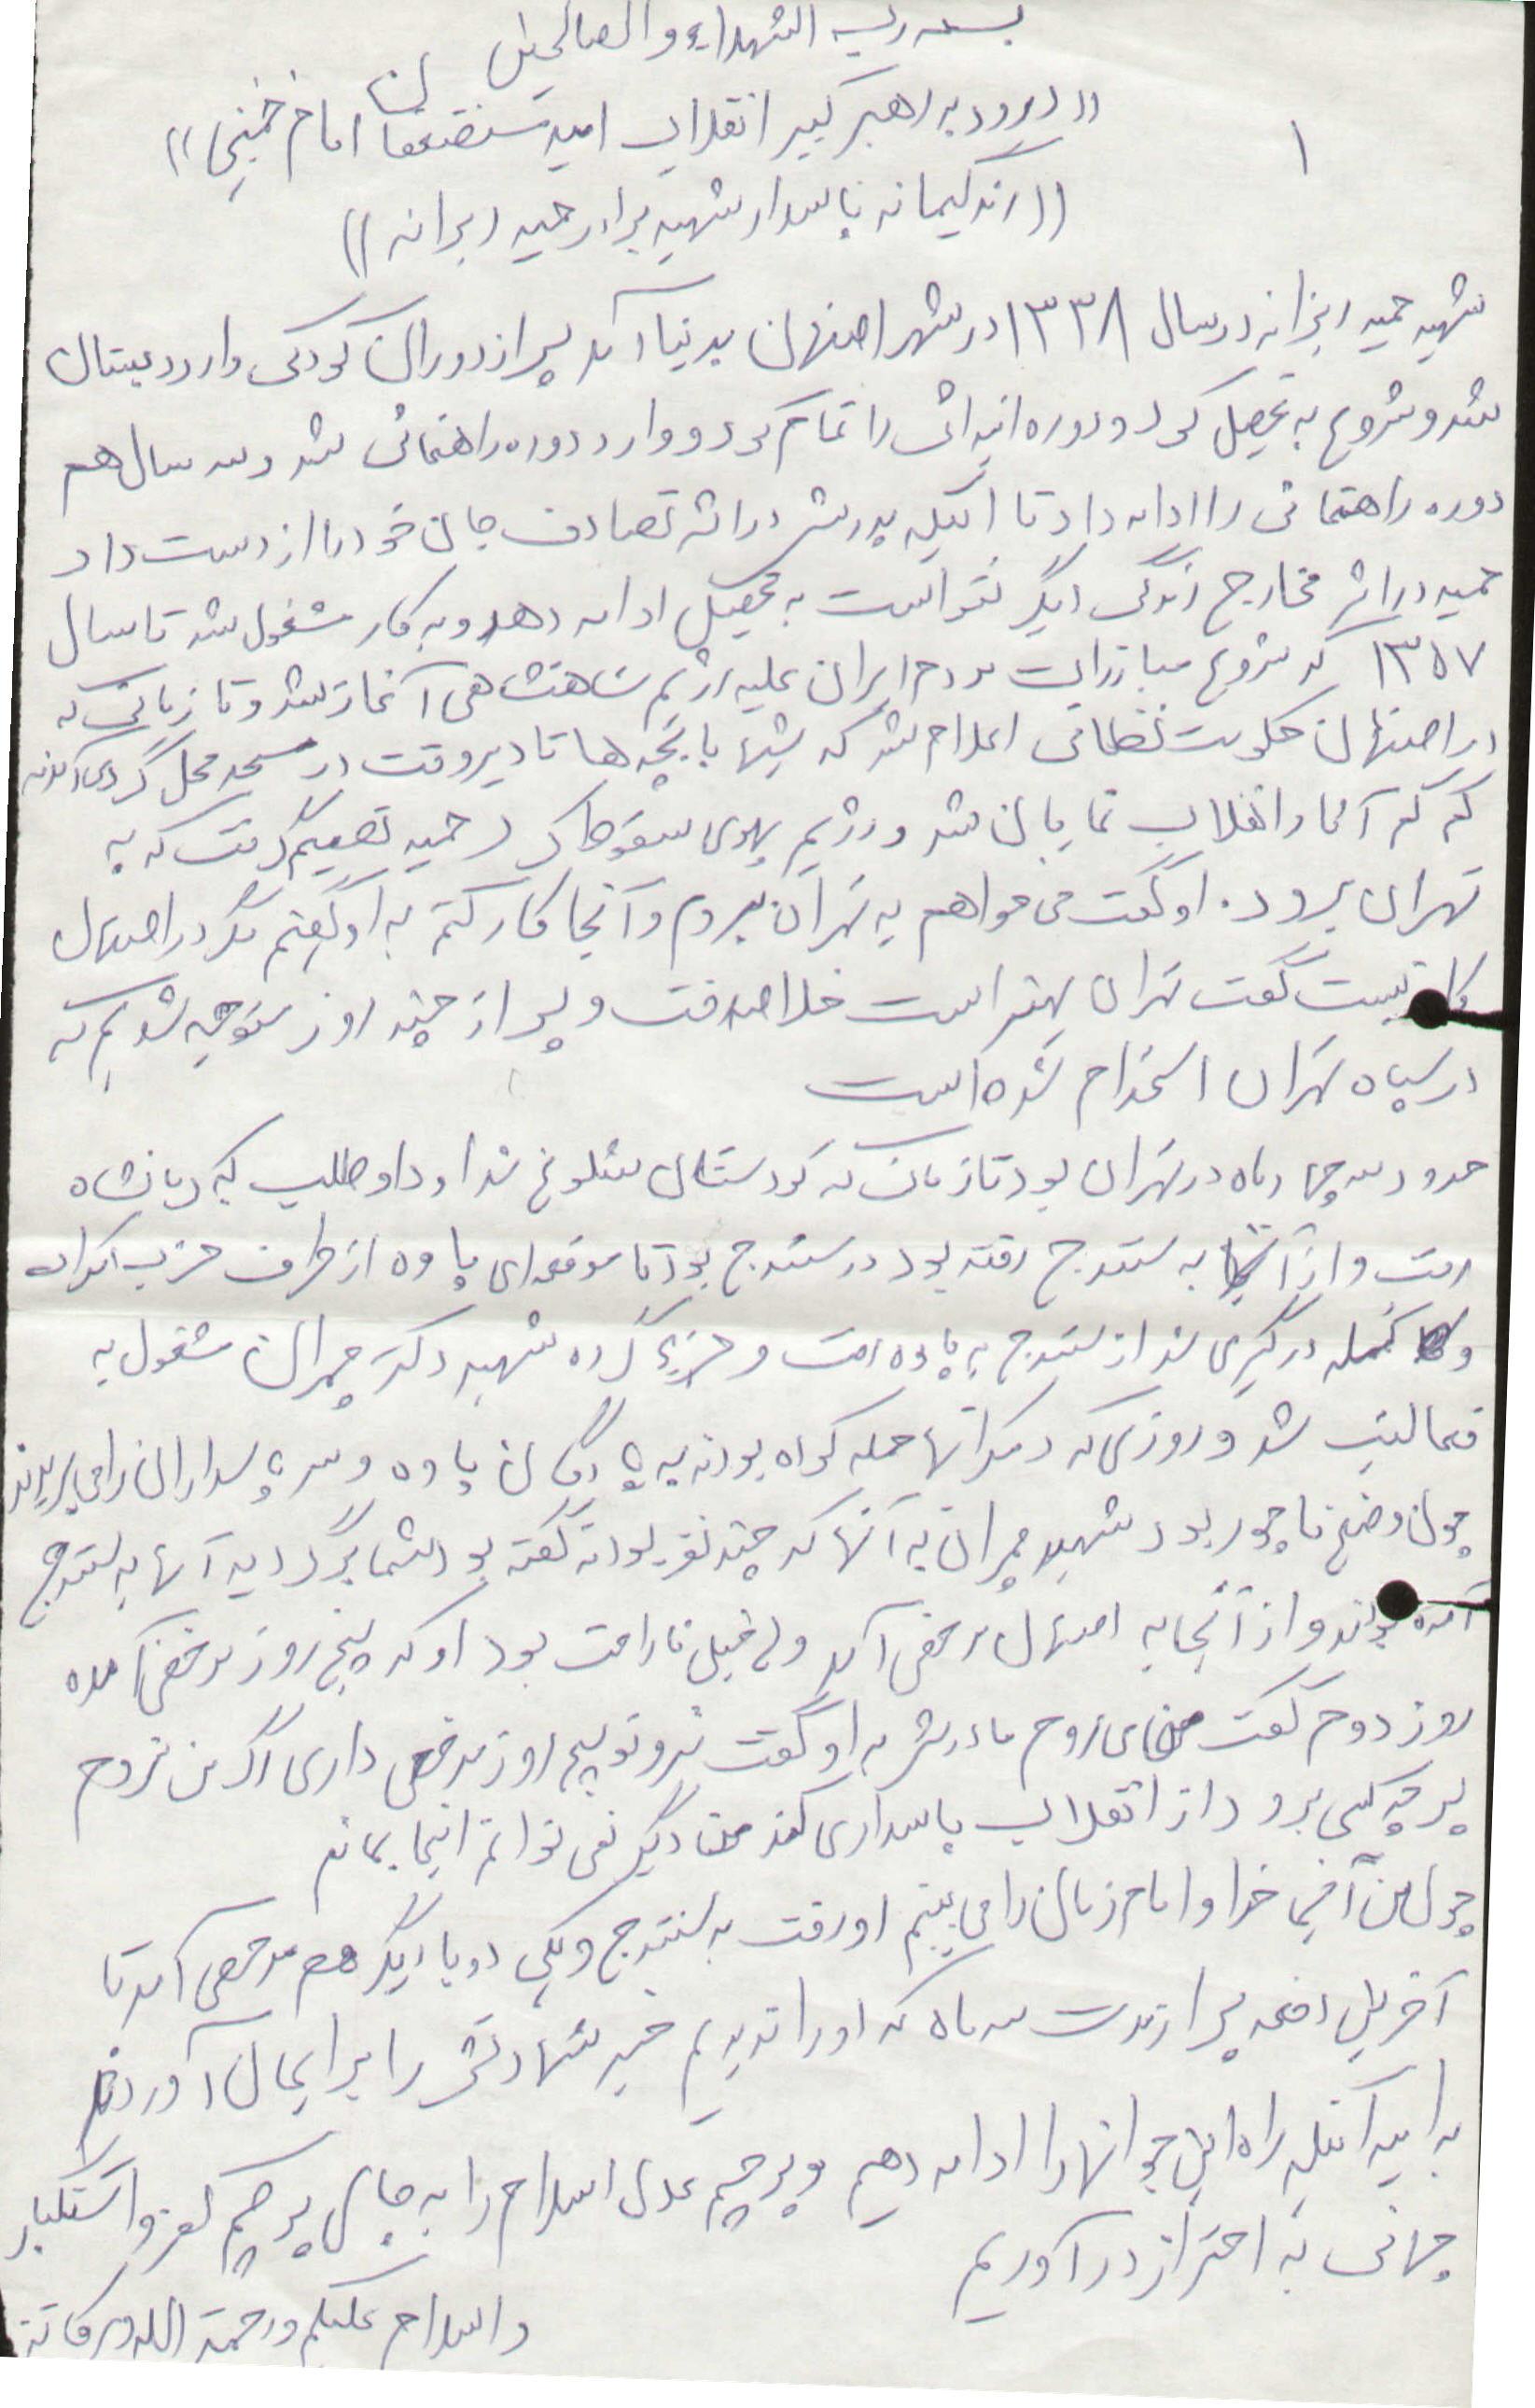 بسمه رب الشهداء والصالحین
((درود به رهبر کبیر انقلاب امید مستضعفان امام خمینی))
۱
((زندگینامه پاسدار شهید برادر حمید))
شهید حمید در سال ۱۳۳۸ در شهر اصفهان بدنیا آمد پس از دوران کودکی وارد دبستان
شد و شروع به تحصیل کرد و دوره ابتدائی را تمام کرد و وارد دوره راهنمائی شد و سه سال هم
دوره راهنمائی را ادامه داد تا اینکه پدرش در اثر تصادف جان خود را از دست داد
حمید در اثر مخارج زندگی دیگر نتوانست به تحصیل ادامه دهد و به کار مشغول شد تا سال
۱۳۵۷ که شروع مبارزات مردم ایران علیه رژیم شاهنشاهی آغاز شد و تا زمانی که
در اصفهان حکومت نظامی اعلام شد که شبها با بچه ها تا دیر وقت در مسجد محل گردمی آمدند
کم کم آثار انقلاب نمایان شد و رژیم پهلوی سقوط کرد حمید تصمیم گرفت که به
تهران برود. او گفت می خواهم به تهران بروم و آنجا کار کنم به او گفتم مگر در اصفهان
کار نیست گفت تهران بهتر است خلاصه رفت و پس از چند روز متوجه شدیم که
در سپاه تهران استخدام شده است
حدود سه چهار ماه در تهران بود تا زمانی که کردستان شلوغ شد او داوطلب به کرمانشاه
رفت و از آنجا به سنندج رفته بود در سنندج بود تا موقعه ای پاوه از طرف حزب دمکرات
و کمله درگیری شد از سنندج به پاوه رفت و جزء گروه شهید دکتر چمران مشغول به
فعالیت شد و روزی که دمکراتها حمله کرده بودند به پادگان پاوه و سر پاسداران را می بریدند
چون وضع ناجور بود شهید چمران به آنها که چند نفر بودند گفته بود شما برگردید آنها به سنندج
آمده بودند و از آنجا به اصفهان مرخصی آمد ولی خیلی ناراحت بود او که پنج روز مرخصی آمده
روز دوم گفت من می روم مادرش به او گفت نرو تو پنج روز مرخصی داری اگر من نروم
پس چه کسی برود از انقلاب پاسداری کند من دیگر نمی توانم اینجا بمانم
چون من آنجا خدا و امام زمان را می بینم او رفت به سنندج و یکی دو بار دیگر هم مرخصی آمد تا
آخرین دفعه پس از مدت سه ماه که او را ندیدیم خبر شهادتش را برایمان آوردند
به امید آنکه راه این جوانها را ادامه دهیم و پرچم عدل اسلام را به جای پرچم کفر و استکبار
جهانی به احتزاز در آوریم
والسلام علیکم ورحمة الله وبرکاته